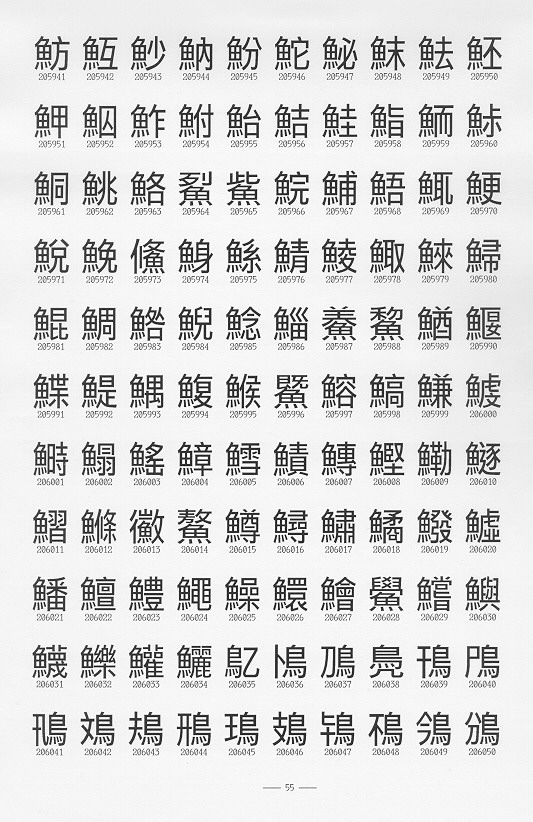 魴 魦 魶 魵 鮀 鮅 鮇 魼 魾
205941 205942 205943 205944 205945 205946 205947 205948 205949 205950
魻 鮓 鮒 鮐 鮚 鮭 鮨 鮞
205951 205952 205953 205954 205955 205956 205957 205958 205959 205960
鮦 鮡 鮥 鮤 鮆 鯇 鯆 鯃 鮿 鯁
205961 205962 205963 205964 205965 205966 205967 205968 205969 205970
鮵 鮸 鯈 鯓 鯀 鯖 鯪 鯫 鯠 鯞
205971 205972 205973 205974 205975 205976 205977 205978 205979 205980
鯤 鯛 鯦 鯢 鯰 鯔 鯗 鯬 鰌 鰋
205981 205982 205983 205984 205985 205986 205987 205988 205989 205990
鰈 鯷 鰅 鰒 鯸 鰫 鰝 鰜
205991 205992 205993 205994 205995 205996 205997 205998 205999 206000
鰣 鰨 鰩 鱆 鱈 鰿 鱄 鰹 鰳 鱁
206001 206002 206003 206004 206005 206006 206007 206008 206009 206010
鰼 鰷 鰲 鱒 鱘 鱐 鱊 鱍 鱋
206011 206012 206013 206014 206015 206016 206017 206018 206019 206020
鱕 鱣 鱧 鱦 鱢 鱞 鱠 鱟 鱨 鱮
206021 206022 206023 206024 206025 206026 206027 206028 206029 206030
鱴 鱳 鱹 鱺 鳦 鳪 鳧 鳱 鳲
206031 206032 206033 206034 206035 206036 206037 206038 206039 206040
鳺 鳿 鳷 鴀 鳹 鳻
206041 206042 206043 206044 206045 206046 206047 206048 206049 206050
55